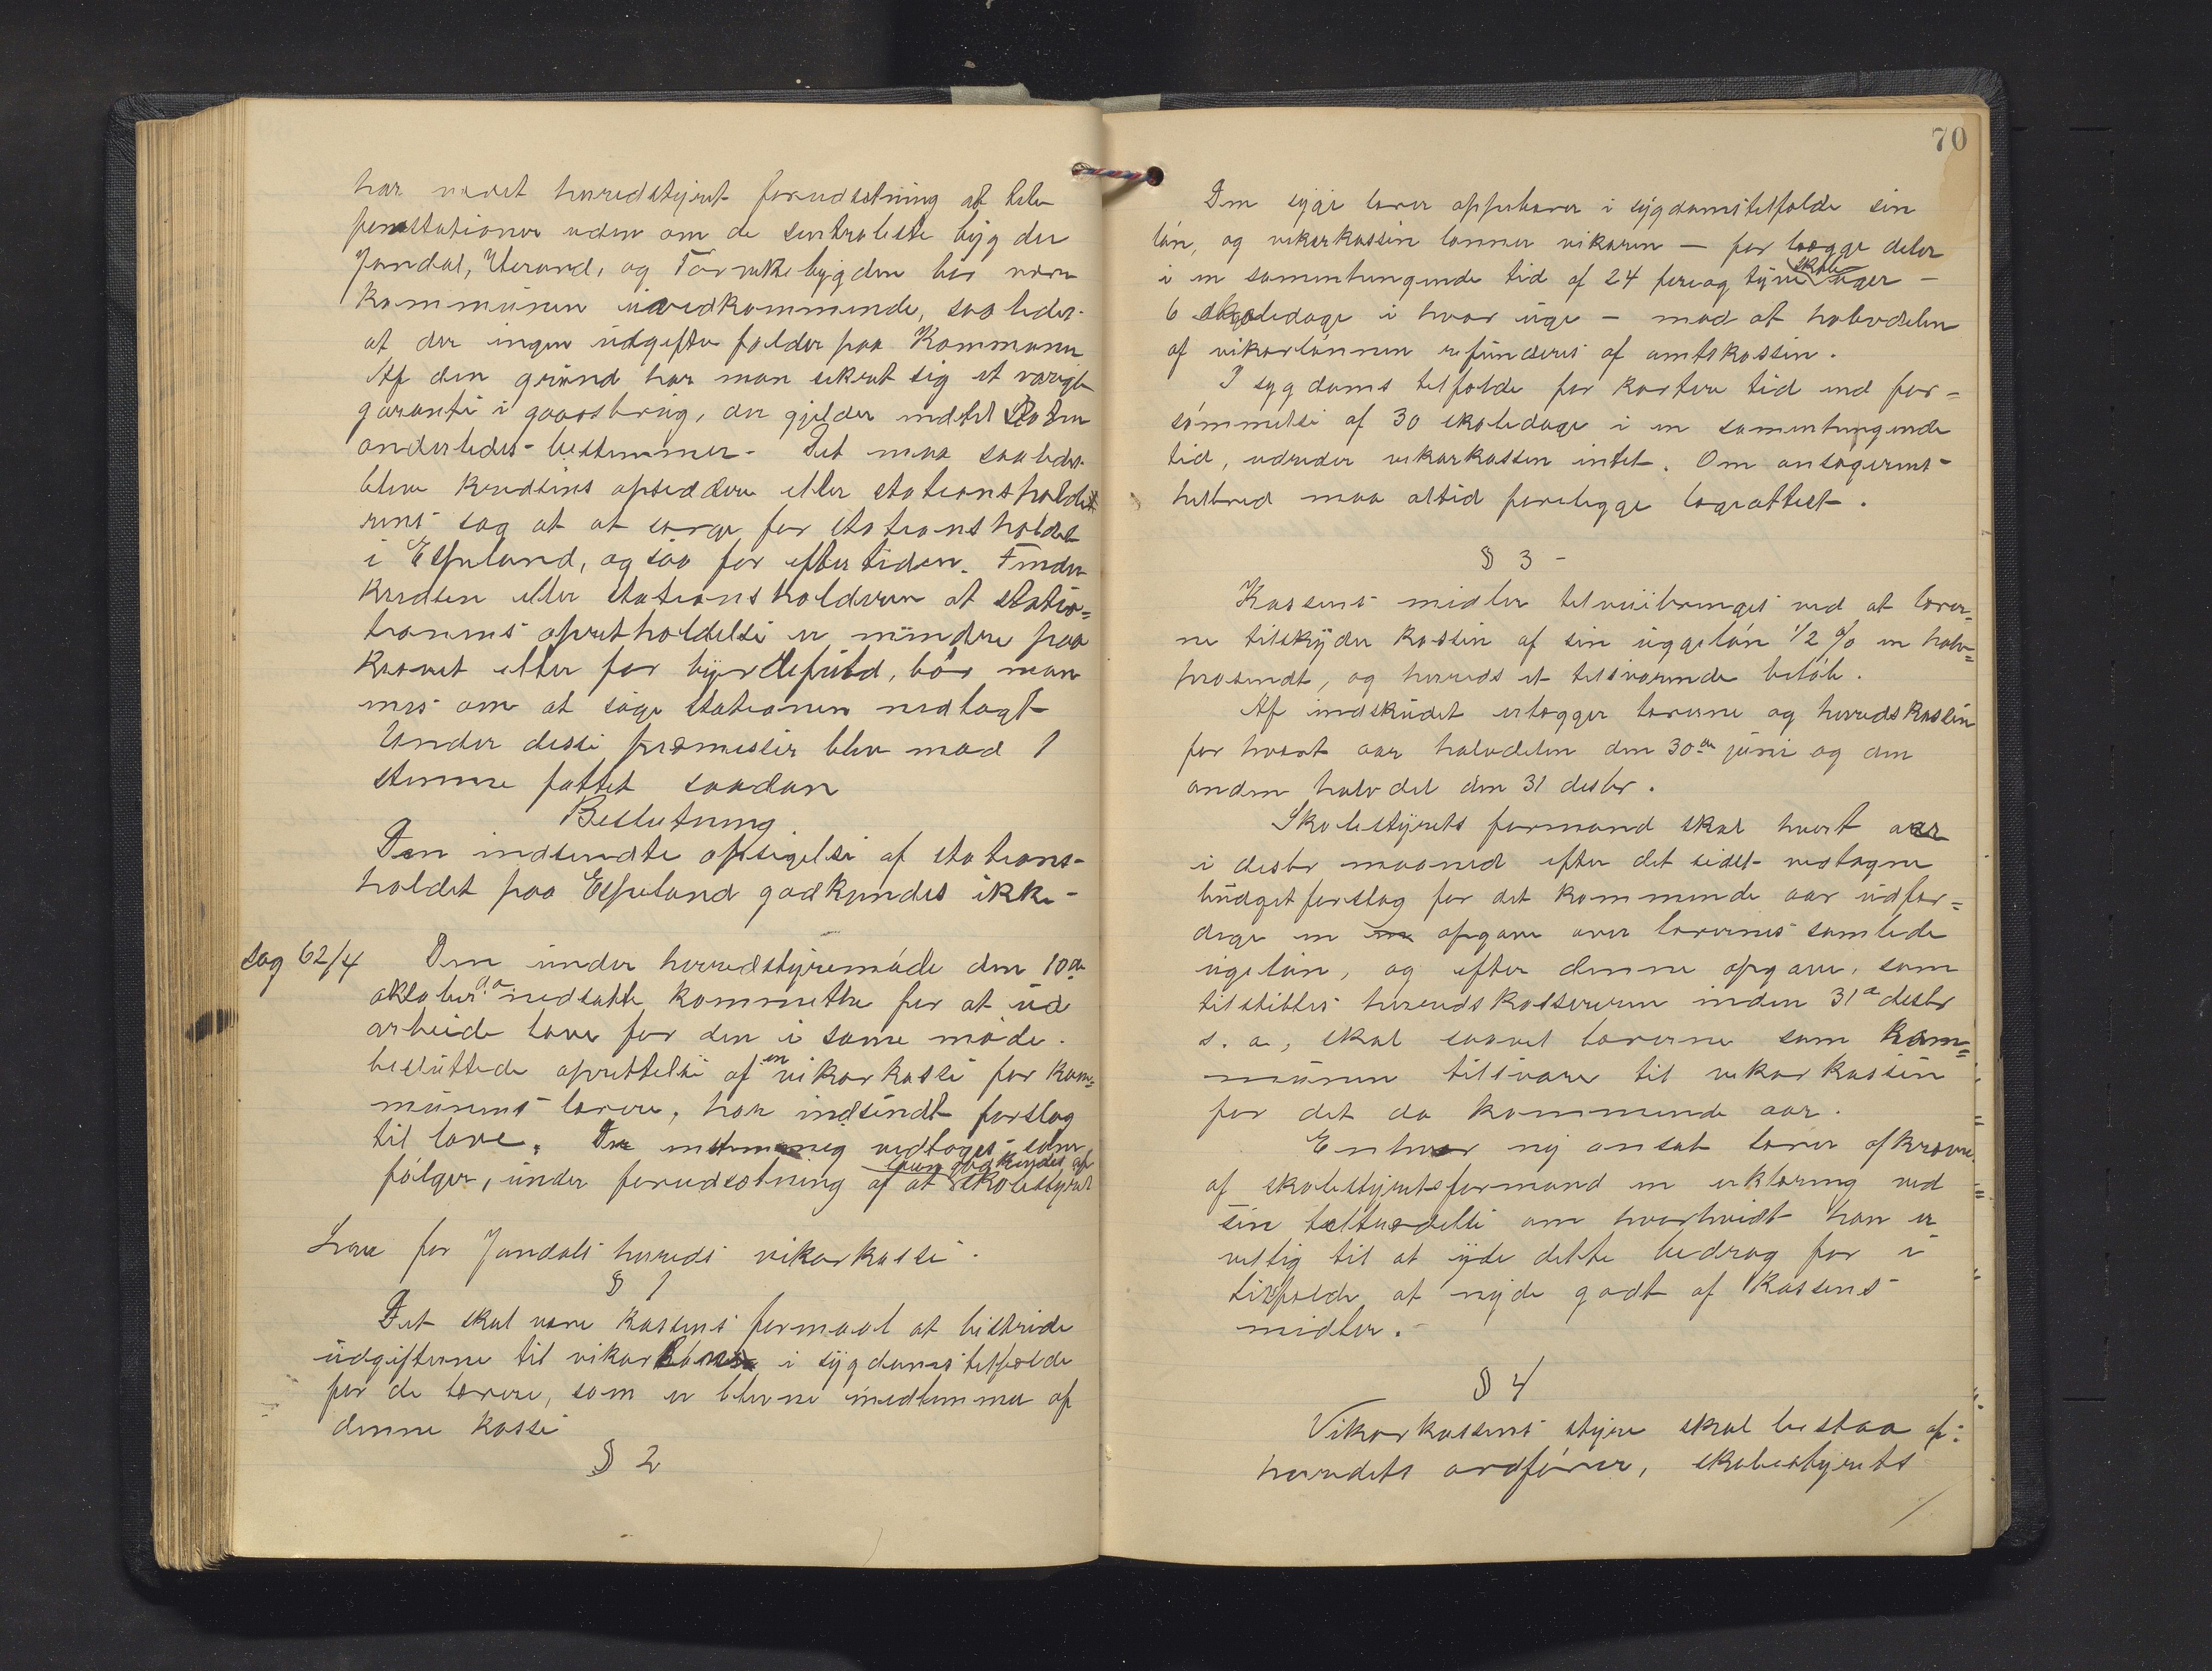 har været herredstyret forudsætning at tele
fonstationer uden om de sentraleste bygder
Jondal, Uterand, og Torvikebygden bør være
kommunen uvedkommende, saaledes
at der ingen udgifter falder paa Kommunen
Af den grund har man sikret sig et varigt
garanti i gaasbrug, der gjelder indtil Staten
anderledes bestemmer. Det maa saaledes
blive kredsens opsiddere eller stationsholde
rens sag at at sørge for stationsholdet
i Espeland, ogsaa for eftertiden. Finder
kredsen eller stationsholderen at statio=
tionens opretholdelse er mindre paa
krævet eller for byrdefuld, bør man
søge stationen nedlagt
Under disse præmisser blev mod 1
stemme fattet saadan
Beslutning
Den indsendte opsigelse af stations-
holdet paa Espeland godkjendes ikke-
Sag 62/4 Den under herredstyremøde den 10de
oktober d.a. nedsatte kommitte for at ud
arbeide love for den i samme møde
besluttede oprettelse af en vikarkasse for kom=
munens lærere, har indsendt forslag
til love. vedtoges som
følger, under forudsætning af at loven godkjendes af skolestyret
Love for Jondals herreds vikarkasse.
§ 1
Det skal være kassens formaal at bestride
udgifterne til vikar i sygdomstilfælde
for de lærere, som er blevne medlemmer af
denne kasse
§ 2
70
Den syge lærer oppebærer i sygdomstilfælde sin
løn, og vikarkassen lønner vikaren — for begge deler
i en sammenhengende tid af 24 fireogtyve skoleuger —
6 skoledage i hver uge — mod at halvdelen
af vikarlønnen refunderes af amtskassen.
I sygdoms tilfælde for kortere tid end for=
sømmelse af 30 skoledage i en sammenhengende
tid, udreder vikarkassen intet. Om ansøgerens
helbred maa altid foreligge lægeattest.
§ 3 -
Kassens midler tilveiebringes ved at lærer=
ne tilskyder kassen af sin ugeløn 1/2 % en halv=
prosendt, og herreds et tilsvarende beløb.
Af indskudet erlægger lærerne og herredskassen
for hvert aar halvdelen den 30de juni og den
anden halvdel den 31 desbr.
Skolestyrets formand skal hvert aar
i desbr maaned efter det sidst vedtagne
budgetforslag for det kommende aar udfær=
dige en opgave over lærernes samlede
ugeløn, og efter denne opgave, som
tilstilles herredskassereren inden 31te desbr
s. a., skal saavel lærerne som kom=
munen tilsvare til vikarkassen
for det da kommende aar.
Enhver ny ansat lærer afkræves
af skolestyretsformand en erklæring ved
sin tiltrædelse om hvorhvidt han er
villig til at yde dette bedrag for i
tilfælde at nyde godt af kassens
midler.
§ 4
Vikarkassens styre skal bestaa af:
herredets ordfører, skolestyrets